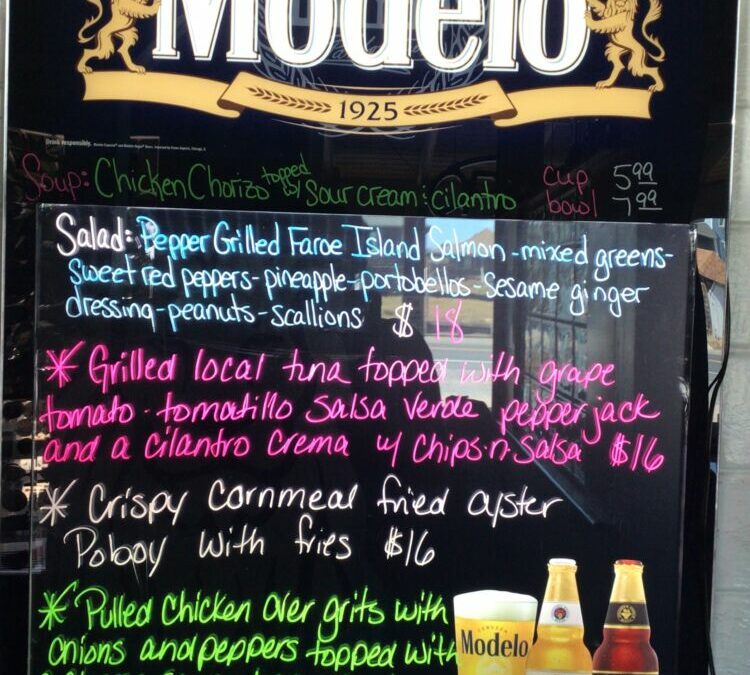 Modelo
1925
Drink responsibly.
Soup: Chicken Chorizo topped by Sour cream & cilantro cup 5.99
bowl 7.99
Salad: Pepper Grilled Faroe Island Salmon - mixed greens-
sweet red peppers - pineapple - portobellos - Sesame ginger
dressing - peanuts - scallions $ 18
* Grilled local tuna topped with grape
tomato - tomatillo Salsa Verde pepper jack
and a cilantro Crema w/ Chips n Salsa $16
* Crispy Cornmeal fried oyster
Poboy with fries $16
* Pulled Chicken over grits with
onions and peppers topped with
Modelo